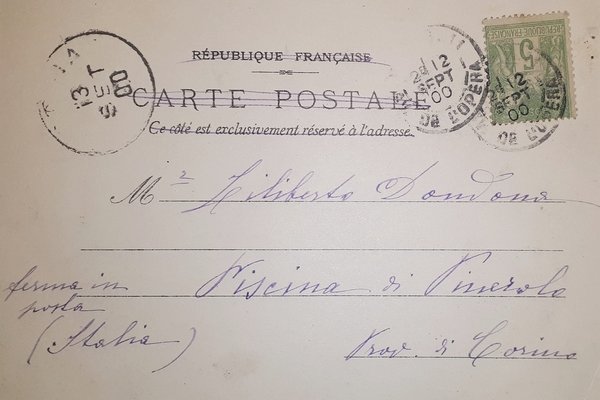 RÉPUBLIQUE FRANÇAISE
CARTE POSTALE
Ce côté est exclusivement réservé à l'adresse.
5
RÉPUBLIQUE FRANÇAISE
12
SEPT
00
DE L'OPÉRA
12
SEPT
00
DE L'OPÉRA
13
SET
00
Mr Filiberto Dondona
Piscina di Pinerolo
ferma in
posta
(Italia)
Prov. di Torino